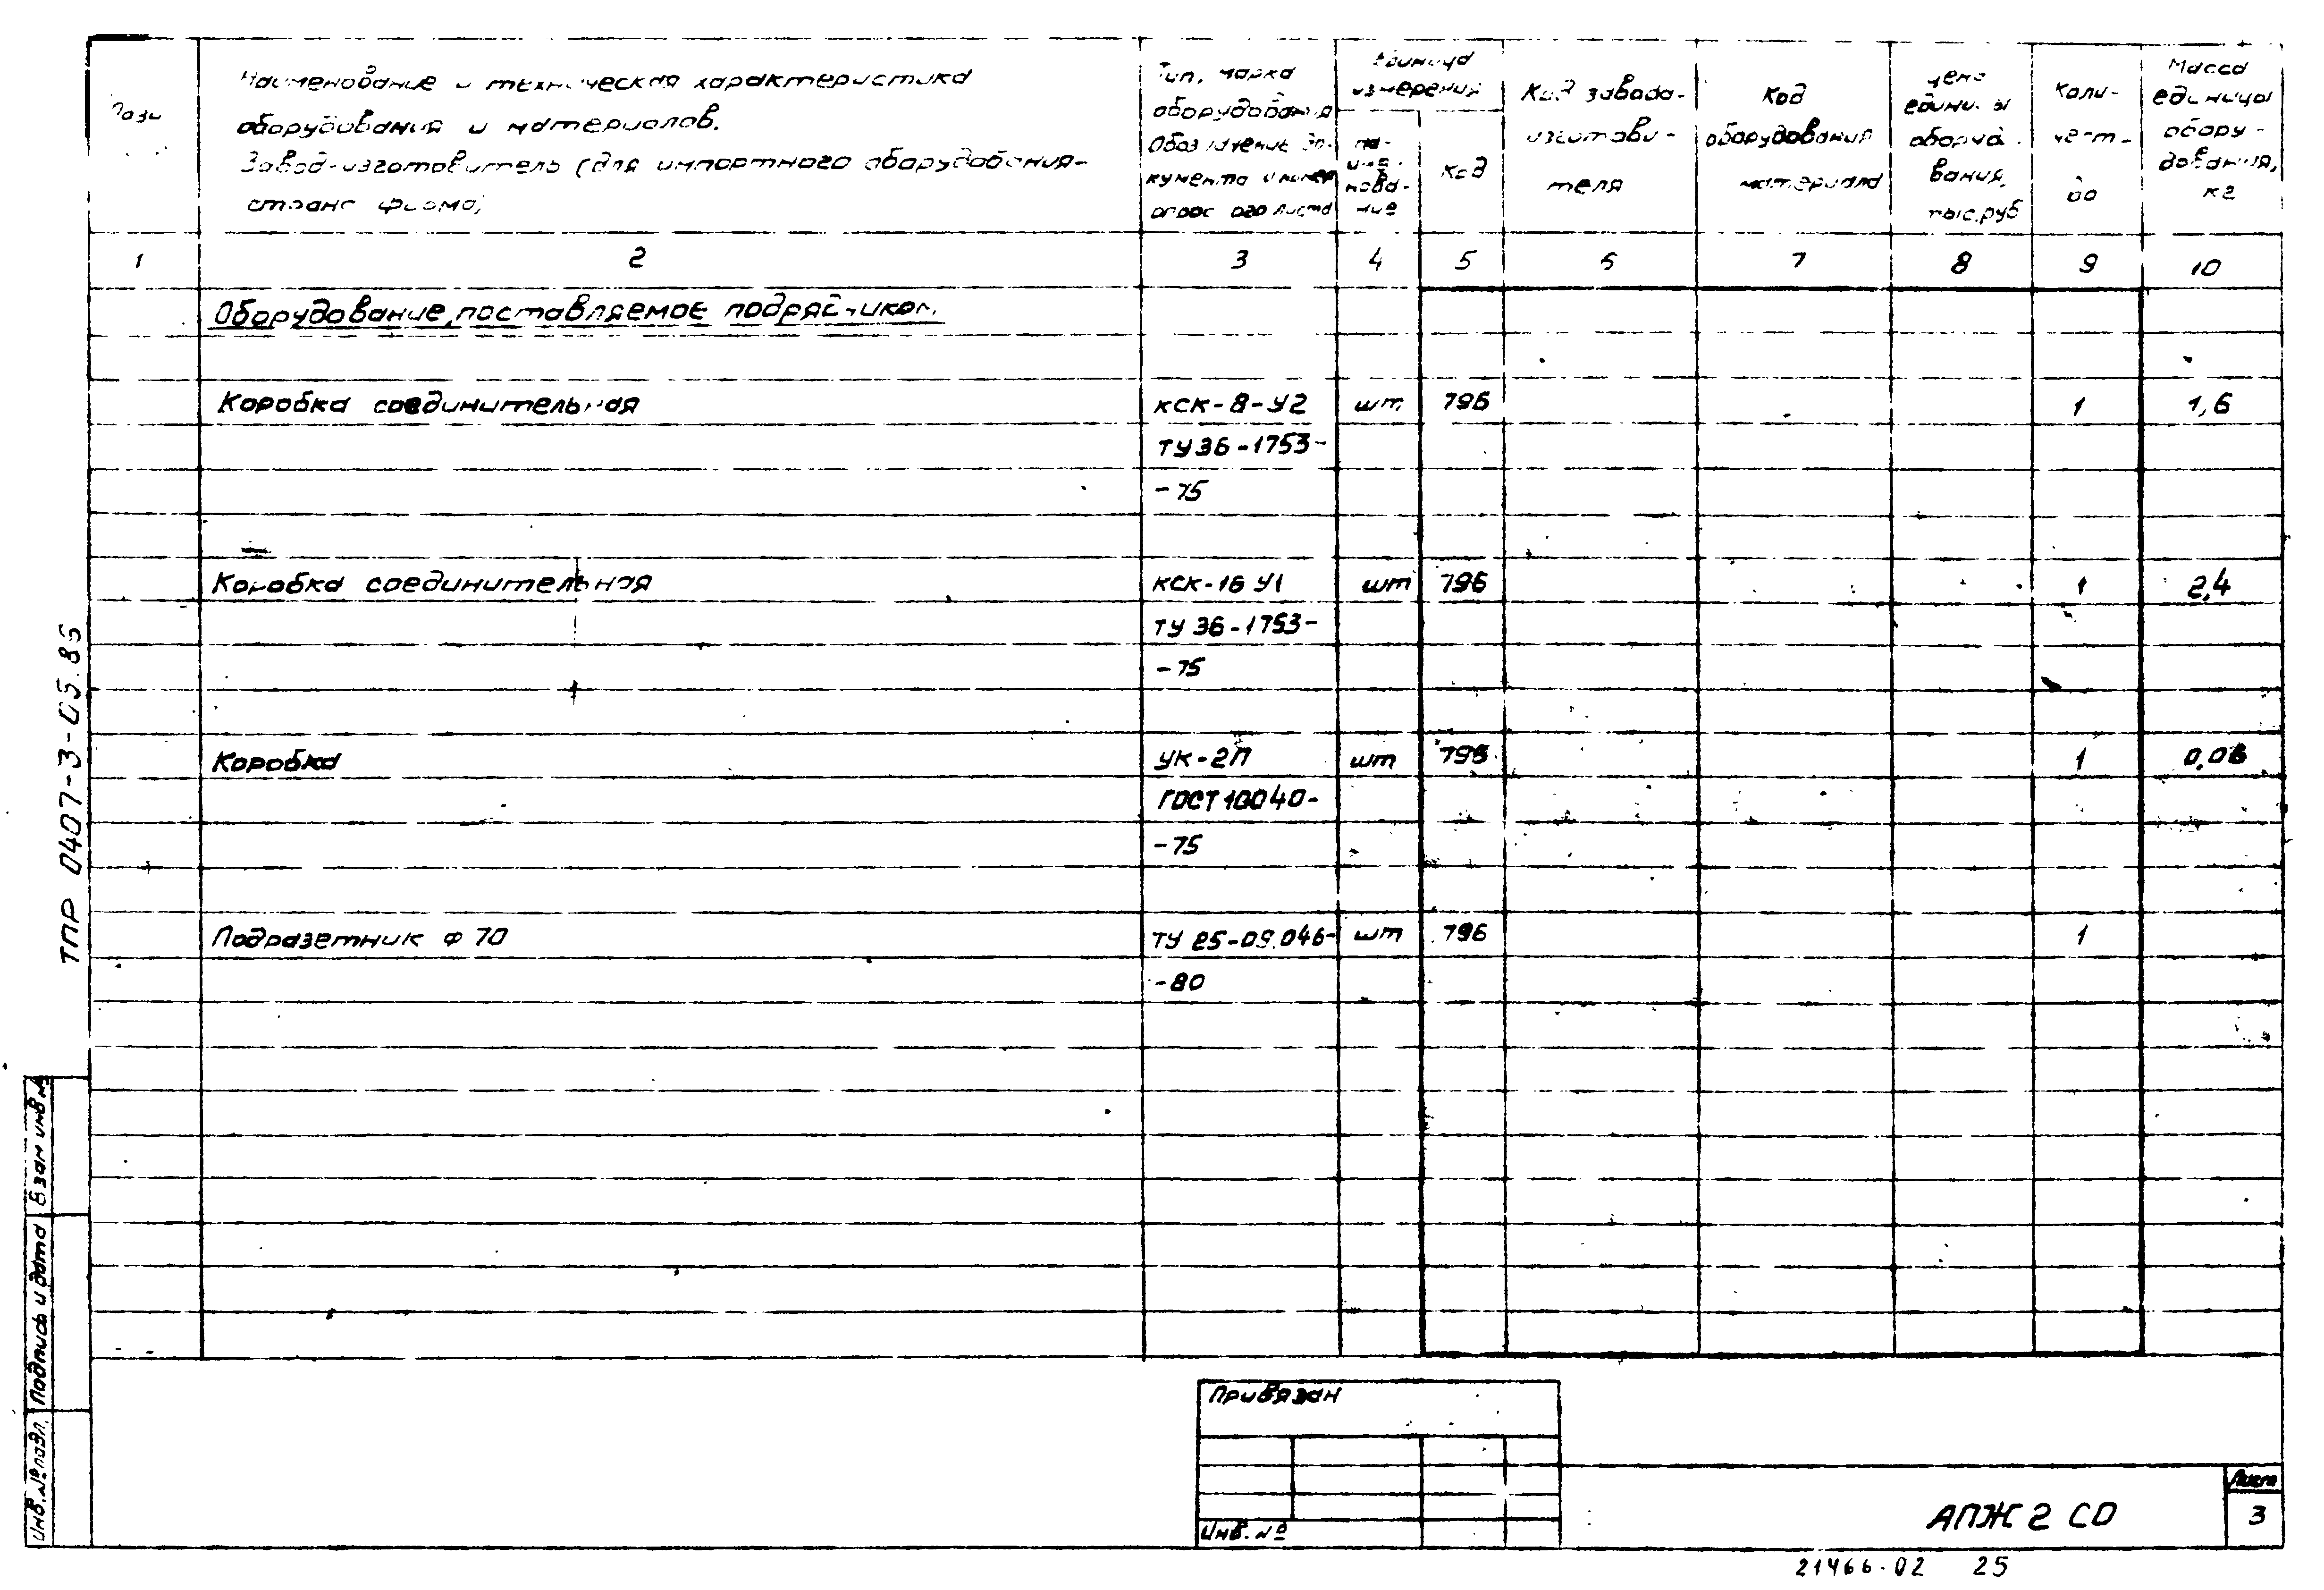 Пози
Наименование и техническая характеристика
оборудования и материалов.
Завод-изготовитель (для импортного оборудования-
страна фирма)
Тип, марка
оборудования
Обозначение до-
кумента и номер
опросного листа
Единица
измерения
на-
име-
нова-
ние
Код
Код завода-
изготови-
теля
Код
оборудования
материала
цена
единицы
оборудо-
вания,
тыс.руб
Коли-
чест-
во
Масса
единицы
обору-
дования,
кг
1 2 3 4 5 6 7 8 9 10
Оборудование, поставляемое подрядчиком
Коробка соединительная КСК-8-У2 шт 796 1 1,6
ТУ36-1753-
-75
Коробка соединительная КСК-16 У1 шт 796 1 2,4
ТУ 36-1753-
-75
Коробка УК-2П шт 796 1
ГОСТ 10040-
-75
Подразетник Ф 70 ТУ 25-09.046- шт 796 1
-80
ТПР 0407-3-05.86
Взам инв №
Подпись и дата
Инв. № подл.
Привязан
Инв. №
АПЖ 2 СО
Лист
3
21466-02 25